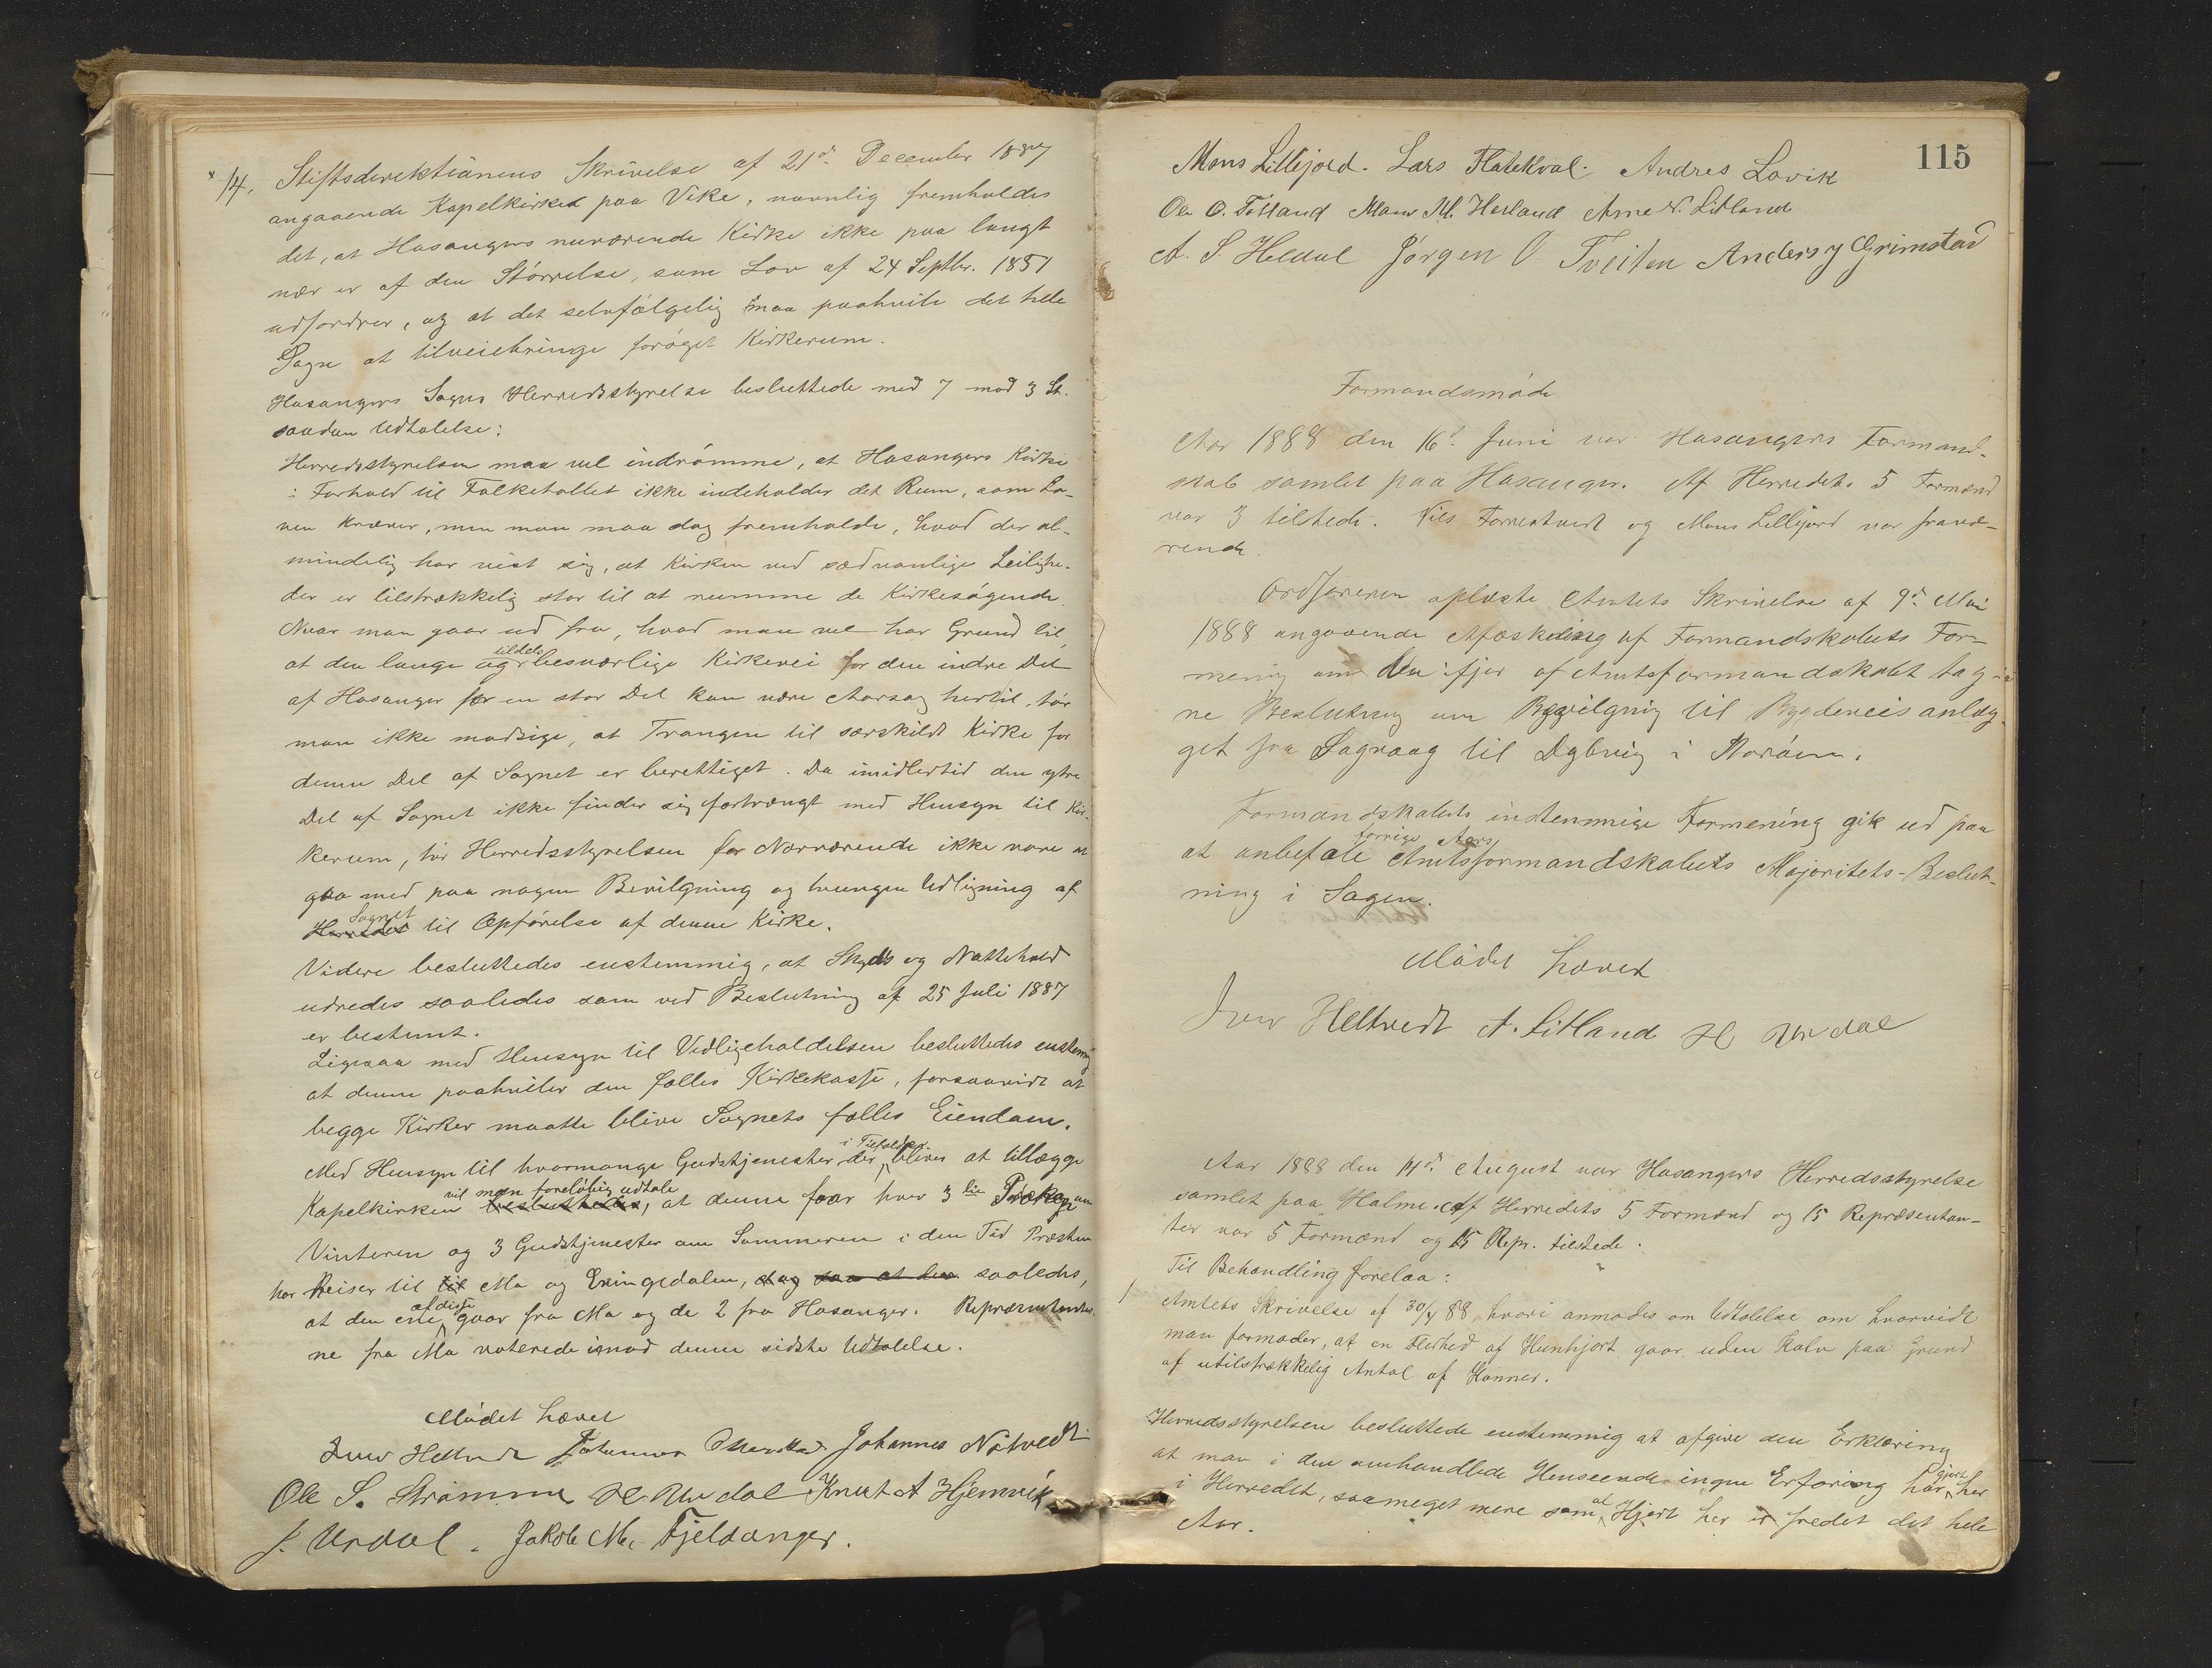 14. Stiftsdirektiånens Skrivelse af 21de December 1887
angaaende Kapelkirken paa Vike, navnlig fremholdes
det, at Hosangers nuværende Kirke ikke paa langt
nær er af den Størrelse, som Lov af 24 Septbr. 1851
udfordrer, og at det selvfølgelig maa paahvile det hele
Sogn at tilveiebringe forøget Kirkerum.
Hosangers Sogns Herredsstyrelse besluttede med 7 mod 3 St.
saadan Udtalelse:
Herredsstyrelsen maa vel indrømme, at Hosangers Kirke
i Forhold til Folketallet ikke indeholder det Rum, som Lo-
ven kræver, men man maa dog fremholde, hvad der al-
mindelig har vist sig, at Kirken ved sædvanlige Leilighe-
der er tilstrækkelig stor til at rumme de Kirkesøgende.
Naar man gaar ud fra, hvad man vel har Grund til,
at den lange og tildels besværlige Kirkevei for den indre Del
af Hosanger for en stor Del kan være Aarsag hertil, tør
man ikke modsige, at Trangen til særskildt Kirke for
denne Del af Sognet er berettiget. Da imidlertid den ytre
Del af Sognet ikke finder sig fortrængt med Hensyn til Kir-
kerum, tør Herredsstyrelsen for Nærværende ikke være at
gaa med paa nogen Bevilgning og tvungen Udligning af
Herredet Sognet til Opførelse af denne Kirke.
Videre besluttedes enstemmig, at Skyds og Nattehold
udredes saaledes som ved Beslutning af 25 Juli 1887
er bestemt.
Ligesaa med Hensyn til Vedligeholdelsen besluttedes enstemmig
at denne paahviler den fælles Kirkekasse, forsaavidt at
begge Kirker maatte blive Sognets fælles Eiendom.
Med Hensyn til hvormange Gudstjenester der i Tilfælde bliver at tillægge
Kapelkirken besluttedes vil man foreløbig udtale, at denne faar hver 3die Præken om
Vinteren og 3 Gudstjenester om Sommeren i den Tid Præsten
har Reiser til til Mo og Eningedalen, dog saa at den saaledes,
at den ene af disse gaar fra Mo og de 2 fra Hosanger. Repræsentanter-
ne fra Mo voterede imod denne sidste Udtalelse.
Mødet hævet
Iver Heltvedt Johannes Johannes Nåtvedt
Ole S. Strømme H. Urdal Knut A Hjemvik
J. Urdal. Jakob M. Fjeldanger.
115
Mons Lillejord. Lars Flatekval. Andres Lovik
Ole O. Totland Mons M. Herland Arne N. Litland
A. S. Heldal Jørgen O Tveiten Anders J Grimstad
Formandsmøde
Aar 1888 den 16de Juni var Hosangers Formand-
skab samlet paa Hosanger. Af Herredets 5 Formænd
var 3 tilstede. Nils Fornestvedt og Mons Lillejord var fravæ-
rende.
Ordføreren oplæste Amtets Skrivelse af 9de Mai
1888 angaaende Afæskning af Formandskabets For-
mening om den ifjor af Amtsformandskabet tag-
ne Beslutning om Bevilgnig til Bygdeveisanlæg-
get fra Sagvaag til Dybvig i Norøen.
Formandskabets enstemmige Formening gik ud paa
at anbefale forrige Aars Amtsformandskabets Majoritets-Beslut-
ning i Sagen.
Mødet hævet
Iver Heltvedt A. Litland H Urdal
Aar 1888 den 14de August var Hosangers Herredsstyrelse
samlet paa Halme. Af Herredets 5 Formænd og 15 Repræsentan-
ter var 5 Formænd og 15 Repr. tilstede.
Til Behandling forelaa:
1 Amtets Skrivelse af 30/4 88, hvori anmodes om Udtalelse om hvorvidt
man formoder, at en Flerhed af Hunhjort gaar uden Kalv paa Grund
af utilstrækkelig Antal af Hanner.
Herredsstyrelsen besluttede enstemmig at afgive den Erklæring
at man i den omhandlede Henseende ingen Erfaring har gjort her
i Herredet, saameget mere som at Hjort her er fredet det hele
Aar.